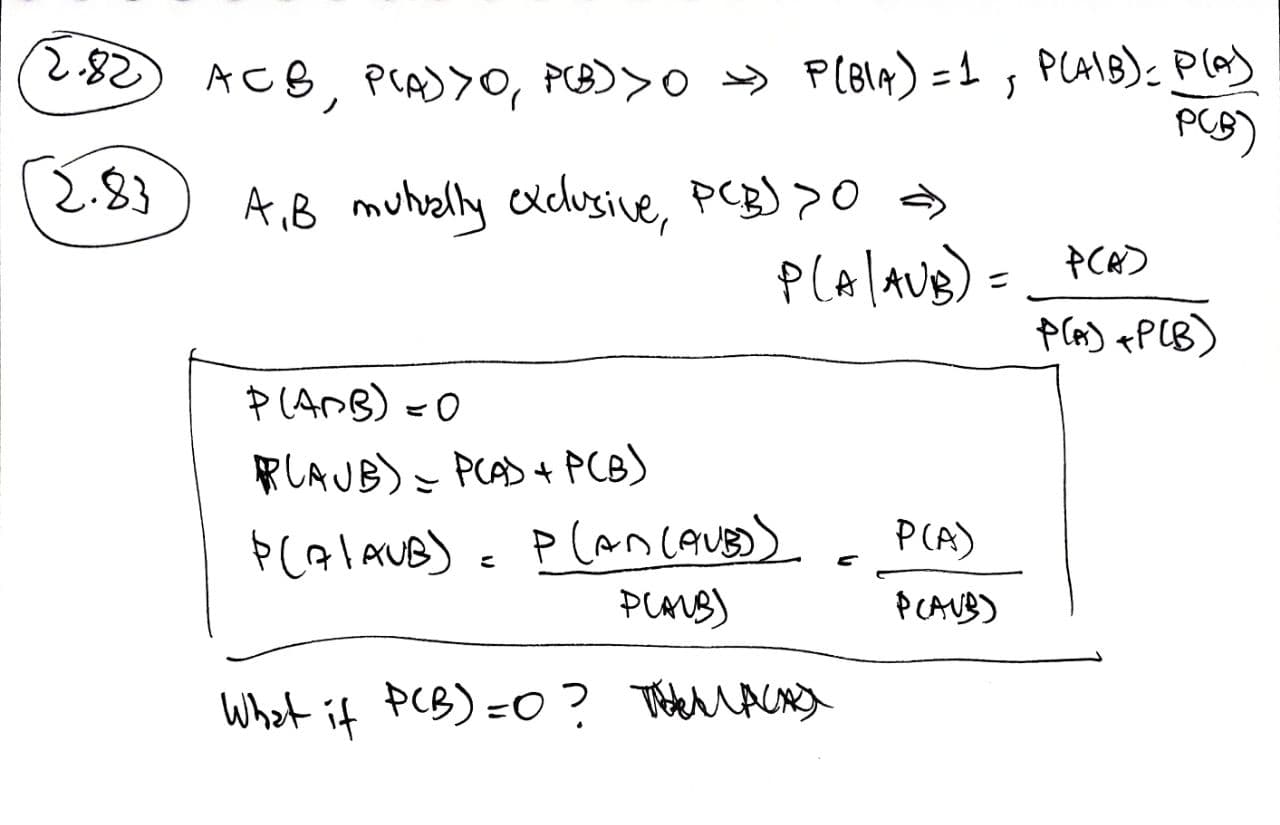 2.82 A⊂B, P(A)>0, P(B)>0 ⇒ P(B|A)=1, P(A|B)= P(A)/P(B)
2.83 A,B mutually exclusive, P(B)>0 ⇒
P(A|A∪B) = P(A)/P(A)+P(B)
P(A∩B)=0
P(A∪B) = P(A) + P(B)
P(A|A∪B) = P(A∩(A∪B))/P(A∪B) = P(A)/P(A∪B)
What if P(B)=0?